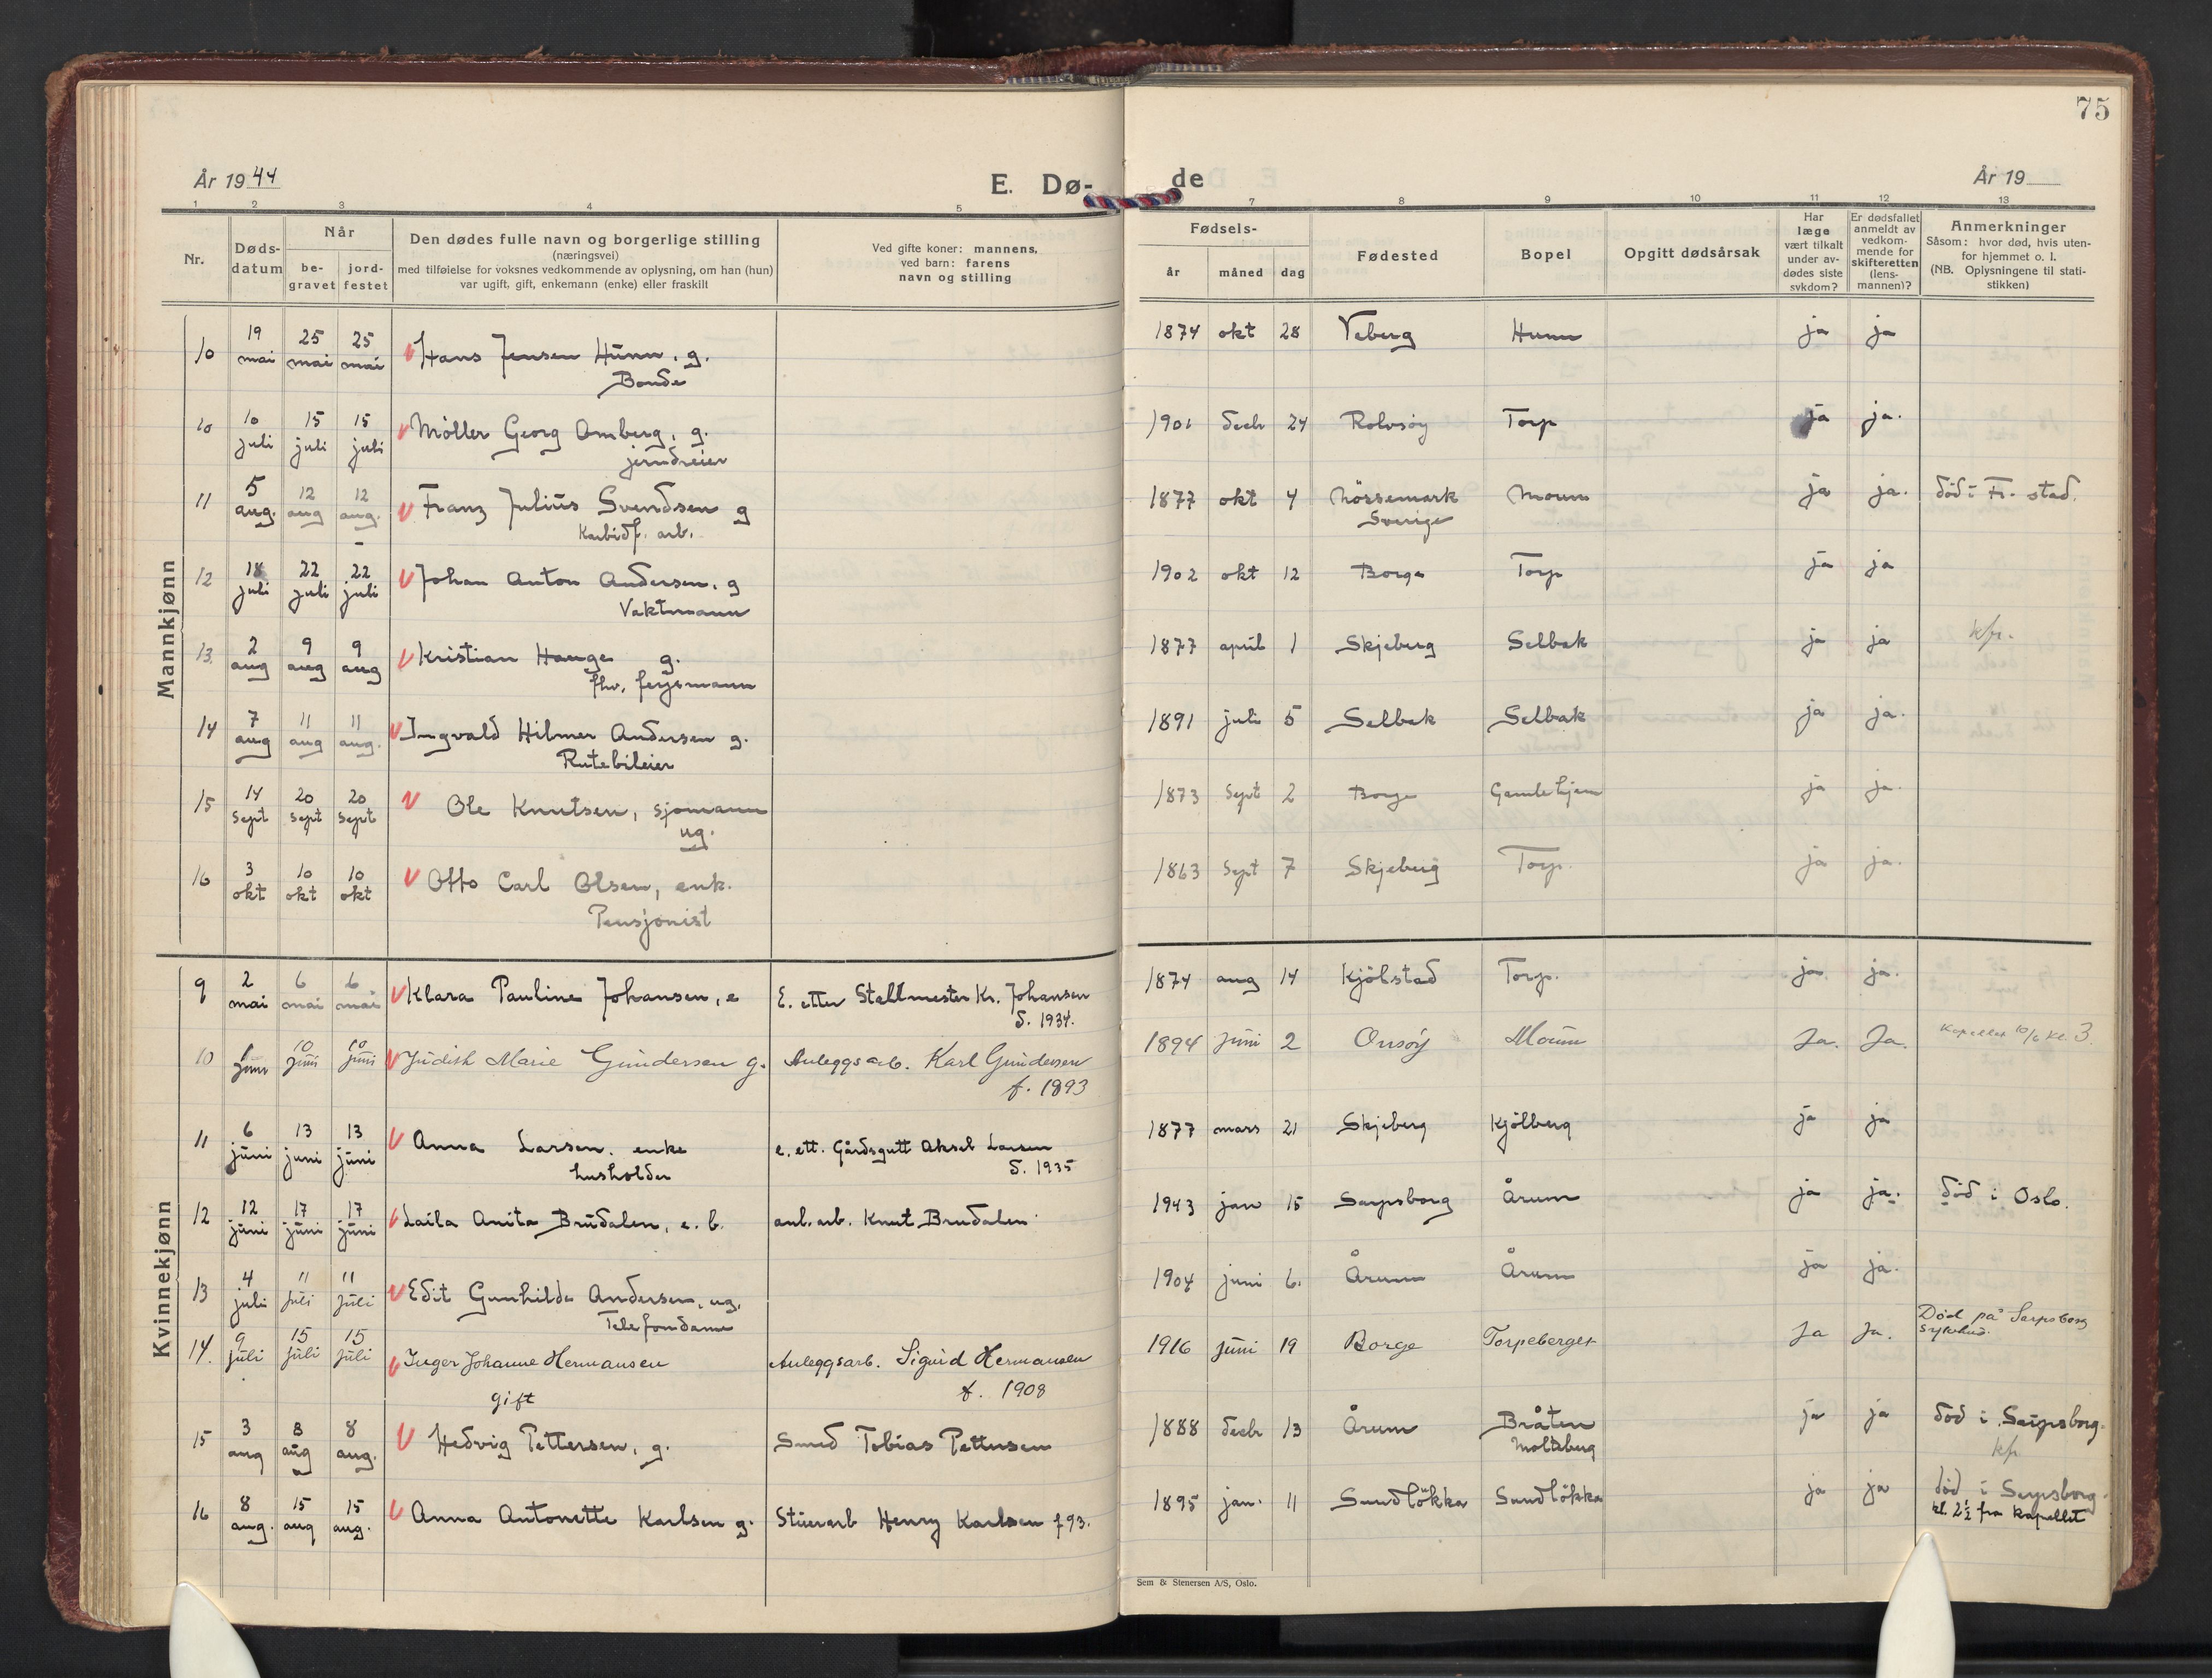 75
År 1944
E. Dø-
de
År 19
1 2 3 4 5 7 8 9 10 11 12 13
Nr.
Døds-
datum
Når
be-
gravet
jord-
festet
Den dødes fulle navn og borgerlige stilling
(næringsvei)
med tilføielse for voksnes vedkommende av oplysning, om han (hun)
var ugift, gift, enkemann (enke) eller fraskilt
Ved gifte koner: mannens,
ved barn: farens
navn og stilling
Fødsels-
år måned dag
Fødested
Bopel
Opgitt dødsårsak
Har
læge
vært tilkalt
under av-
dødes siste
sykdom?
Er dødsfallet
anmeldt av
vedkom-
mende for
skifteretten
(lens-
mannen)?
Anmerkninger
Såsom: hvor død, hvis uten-
for hjemmet o. l.
(NB. Oplysningene til stati-
stikken)
Mannkjønn
10 19 mai 25 mai 25 mai Hans Jensen Hunn, g. 1874 okt 28 Veberg Hunn ja ja
Bonde
10 10 juli 15 juli 15 juli Møller Georg Omberg, g. 1901 decbr 24 Rolvsøy Torp ja ja.
jerndreier
11 5 aug. 12 aug 12 aug. Franz Julius Svendsen g 1877 okt 4 Nössemark Moum ja ja. död i Fr. stad.
Karbidf. arb. Sverige
12 18 juli 22 juli 22 juli Johan Anton Andersen, g 1902 okt 12 Borge Torp ja ja
Vaktmann
13. 2 aug 9 aug 9 aug Kristian Hauge g. 1877 april 1 Skjeberg Selbak ja ja kfr.
fhv. fergemann
14 7 aug 11 aug 11 aug. Ingvald Hilmer Andersen g. 1891 juli 5 Selbak Selbak ja ja.
Rutebileier
15 14 sept 20 sept 20 sept Ole Knutsen, sjømann 1873 sept 2 Borge Gamlehjem ja ja.
ug.
16 3 okt 10 okt 10 okt Otto Carl Olsen, enk. 1863 sept 7 Skjeberg Torp. ja ja.
Pensjonist
Kvinnekjønn
9 2 mai 6 mai 6 mai Klara Pauline Johansen, e E. etter Stallmester Kr. Johansen 1874 aug 14 Kjölstad Torp. ja. ja.
d. 1934.
10 juni 10 juni 10 juni Judith Marie Gundersen g. Anleggsarb. Karl Gundersen 1894 juni 2 Onsøy Moum Ja. Ja. Kapellet 10/6 kl. 3.
f. 1893
11 6 juni 13 juni 13 juni Anna Larsen, enke e. ett. Gårdsgutt Aksel Larsen 1877 mars 21 Skjeberg Kjölberg ja ja
husholder d. 1935
12 12 juni 17 juni 17 juni Laila Anita Brudalen, e. b. anl. arb. Knut Brudalen 1943 jan 15 Sarpsborg Årum ja ja. död i Oslo.
13 4 juli 11 juli 11 juli Edit Gunhilde Andersen, ug. 1904 juni 6. Årum Årum ja ja.
Telefondame
14. 9 juli 15 juli 15 juli Inger Johanne Hermansen Anleggsarb. Sigurd Hermansen 1916 juni 19 Borge Torpeberget Ja Ja. Død på Sarpsborg
sykehus.
gift f. 1908
15 3 aug 8 aug 8 aug. Hedvig Pettersen, g. Smed Tobias Pettersen 1888 decbr 13 Årum Bråten ja ja död i Sarpsborg.
Molteberg kfr
16 8 aug. 15 aug 15 aug. Anna Antonette Karlsen g. Stuerarb Henry Karlsen f 93. 1895 jan. 11 Sundlökka Sundlökka ja ja död i Sarpsborg.
kl. 2½ fra kapellet
Sem & Stenersen A/S, Oslo.